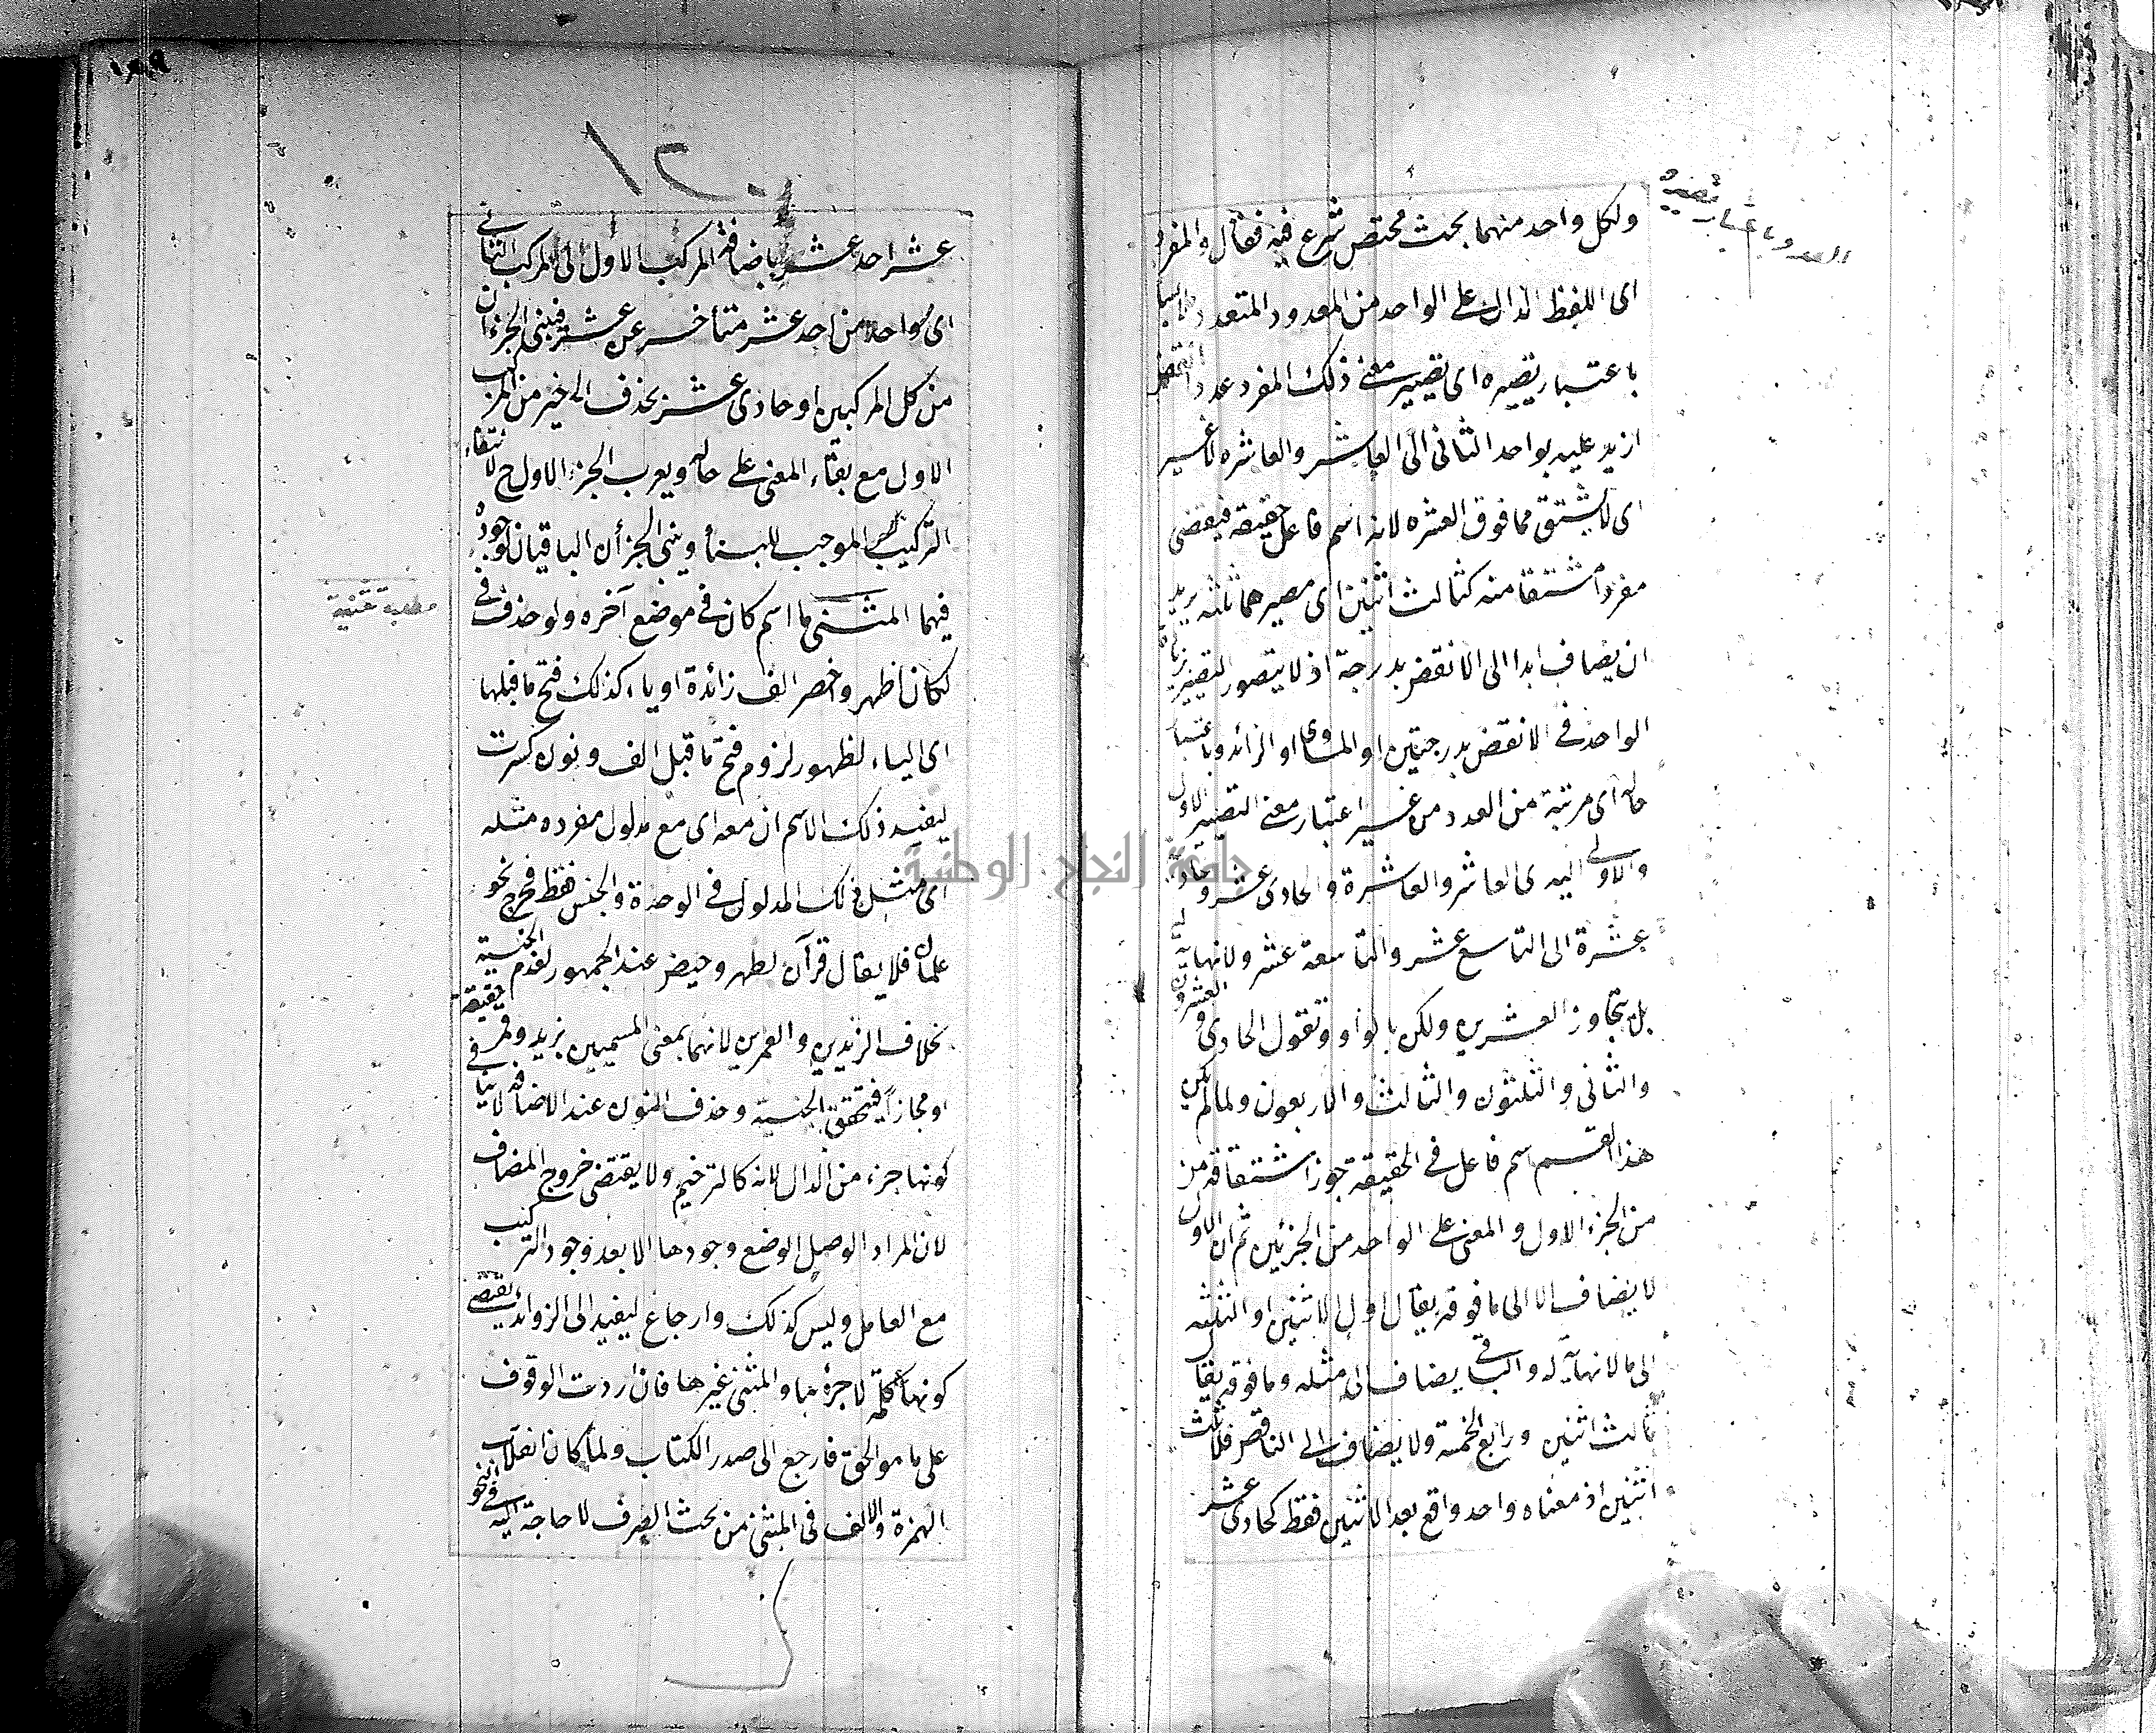 ولكل واحد منهما بحث مختص شرع فيه فقال والمفرد
اى اللفظ الدال على الواحد من المعدود المتعدد
باعتبار تصييره اى تصيير معنى ذلك المفرد عددا
ازيد عليه بواحد الثانى الى العاشر والعاشرة لا غير
اى لا يشتق مما فوق العشرة لانه اسم فاعل حقيقة فيقتضى
مفردا مشتقا منه كثالث اثنين اى مصيرهما ثلثة يريد
ان يضاف ابدا الى الانقص بدرجة اذ لا يتصور التصيير
الواحد فى الانقص بدرجتين او المساوى او الزائد وباعتبار
حاله اى مرتبة من العدد من غير اعتبار معنى التصيير الاول
والاولى اليه العاشر والعاشرة والحادى عشر
عشرة الى التاسع عشر والتاسعة عشر ولا نهاية له
بل يتجاوز العشرين ولكن بالواو وتقول الحادى والعشرون
والثانى والثلثون والثالث والاربعون ولما لم يكن
هذا القسم اسم فاعل فى الحقيقة جوز اشتقاقه من
من الجزء الاول والمعنى على الواحد من الجزئين ثم ان الاول
لا يضاف الا الى ما فوقه يقال اول الاثنين او الثلثة
الى ما لا نهاية له والباقى يضاف الى مثله وما فوقه يقال
ثالث اثنين ورابع الخمسة ولا يضاف الى الناقص فلا ثالث
اثنين اذ معناه واحد واقع بعد الاثنين فقط كحادى عشر
العدد باعتبار تصييره
١٢٠
عشر احد عشر باضافة المركب الاول الى المركب الثانى
اى واحد من احد عشر متأخر عن عشر فيبنى الجزءان
من كل المركبين او حادى عشر بحذف الاخير من المركب
الاول مع بقاء المعنى على حاله ويعرب الجزء الاول ح لانتفاء
التركيب الموجب للبناء ويبنى الجزأن الباقيان لوجوده
فيهما المثنى ما اسم كان فى موضع آخره ولو حذف فى
لكان اظهر واخصر الف زائدة او ياء كذلك فتح ما قبلها
اى الياء لظهور لزوم فتح ما قبل الف ونون كسرت
ليفيد ذلك الاسم ان معه اى مع مدلول مفرده مثله
اى مثل ذلك المدلول فى الوحدة والجنس فقط فخرج نحو
علمان فلا يقال قرآن لطهر وحيض عند الجمهور لعدم الجنسية
بخلاف الزيدين والعمرين لانهما بمعنى المسميين بزيد وعمر حقيقة
او مجازا فيتحقق الجنسية وحذف النون عند الاضافة لا ينافى
كونها جزء من الدال لانه كالترخيم ولا يقتضى خروج المضاف
لان المراد الوصل الوضع وجودها الا بعد وجود التركيب
مع العامل وليس كذلك وارجاع ليفيد الى الزوائد يقتضى
كونها كلمة لا جزءها والمثنى غيرها فان اردت الوقوف
على ما هو الحق فارجع الى صدر الكتاب ولما كان انقلاب
الهمزة والالف فى المثنى من بحث الصرف لا حاجة اليه فى النحو
جامعة النجاح الوطنية